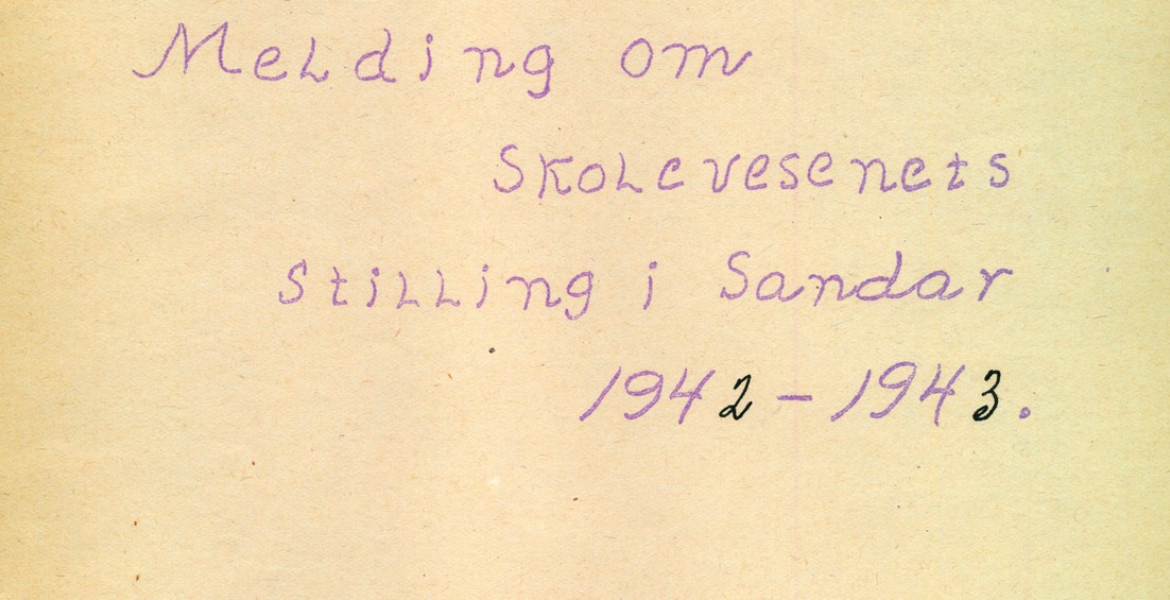 Melding om
Skolevesenets
Stilling i Sandar
1942-1943.